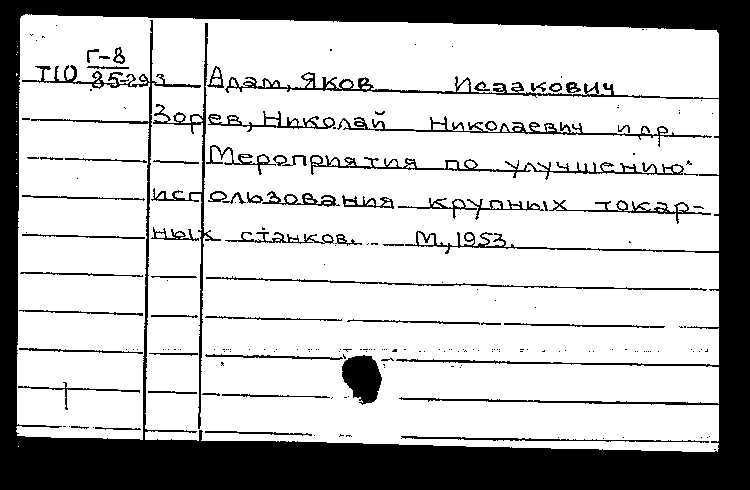 Г-8
Т10 85-293 Адам, Яков Исаакович
Зорев, Николай Николаевич и др.
Мероприятия по улучшению
использования крупных токар-
ных станков. М., 1953.